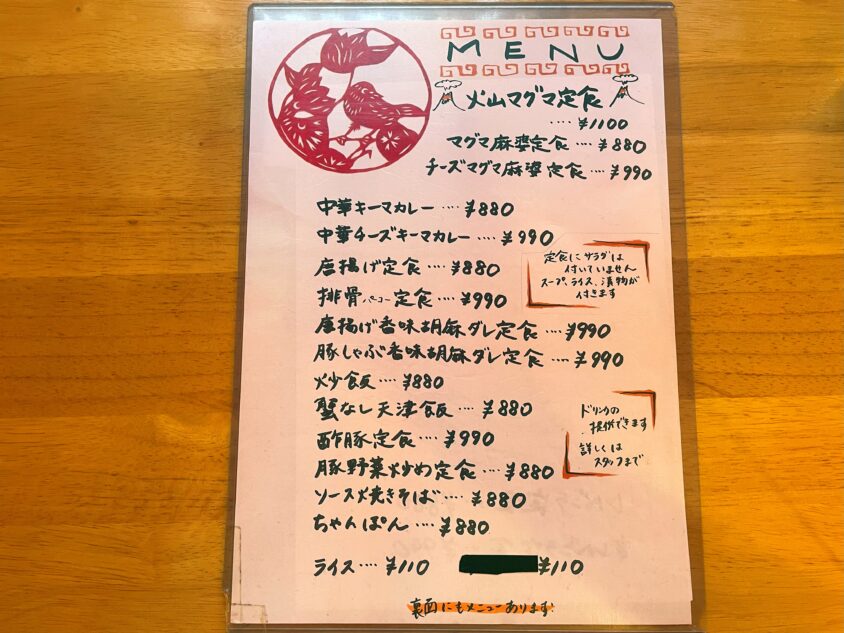 MENU
火山マグマ定食
‥‥ ¥1100
マグマ麻婆定食 ‥‥ ¥880
チーズマグマ麻婆定食 ‥‥ ¥990
中華キーマカレー ‥‥ ¥880
中華チーズキーマカレー ‥‥ ¥990
唐揚げ定食 ‥‥ ¥880
排骨パーコー定食 ‥‥ ¥990
唐揚げ香味胡麻ダレ定食 ‥‥ ¥990
豚しゃぶ香味胡麻ダレ定食 ‥‥ ¥990
炒飯 ‥‥ ¥880
蟹なし天津飯 ‥‥ ¥880
酢豚定食 ‥‥ ¥990
豚野菜炒め定食 ‥‥ ¥880
ソース焼きそば ‥‥ ¥880
ちゃんぽん ‥‥ ¥880
ライス ‥‥ ¥110
¥110
定食にサラダは
付いていません
スープ、ライス、漬物が
付きます
ドリンクの
提供できます
詳しくは
スタッフまで
裏面にもメニューあります!